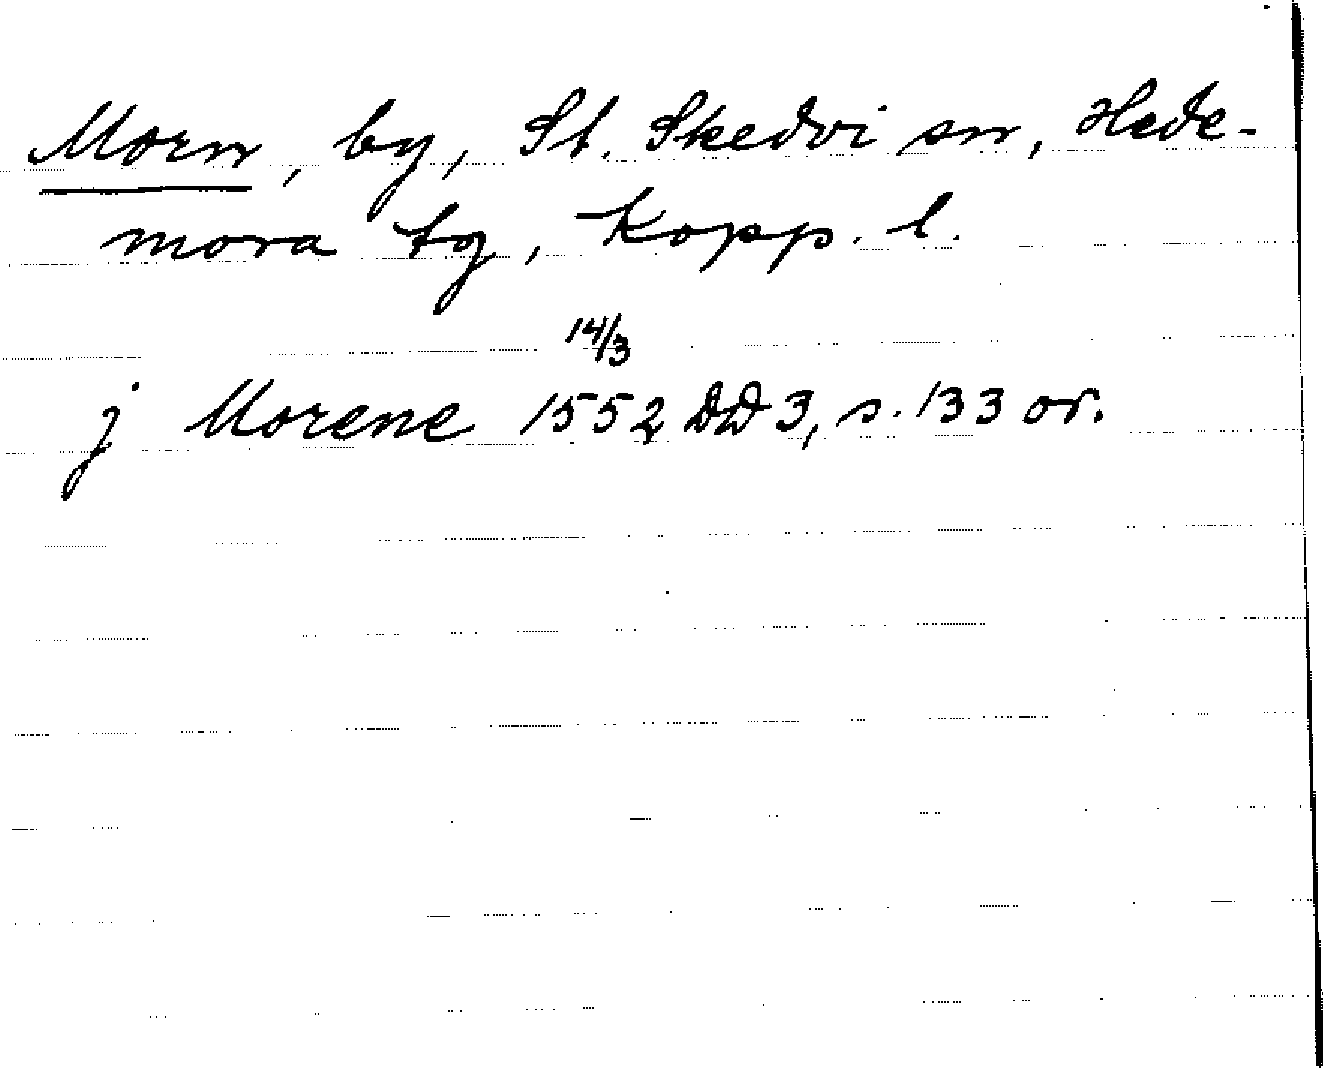 Morn, by, St. Skedvi sn, Hede-
mora tg, Kopp. l.
14/3
j Morene 1552 DD 3, s. 133 or.